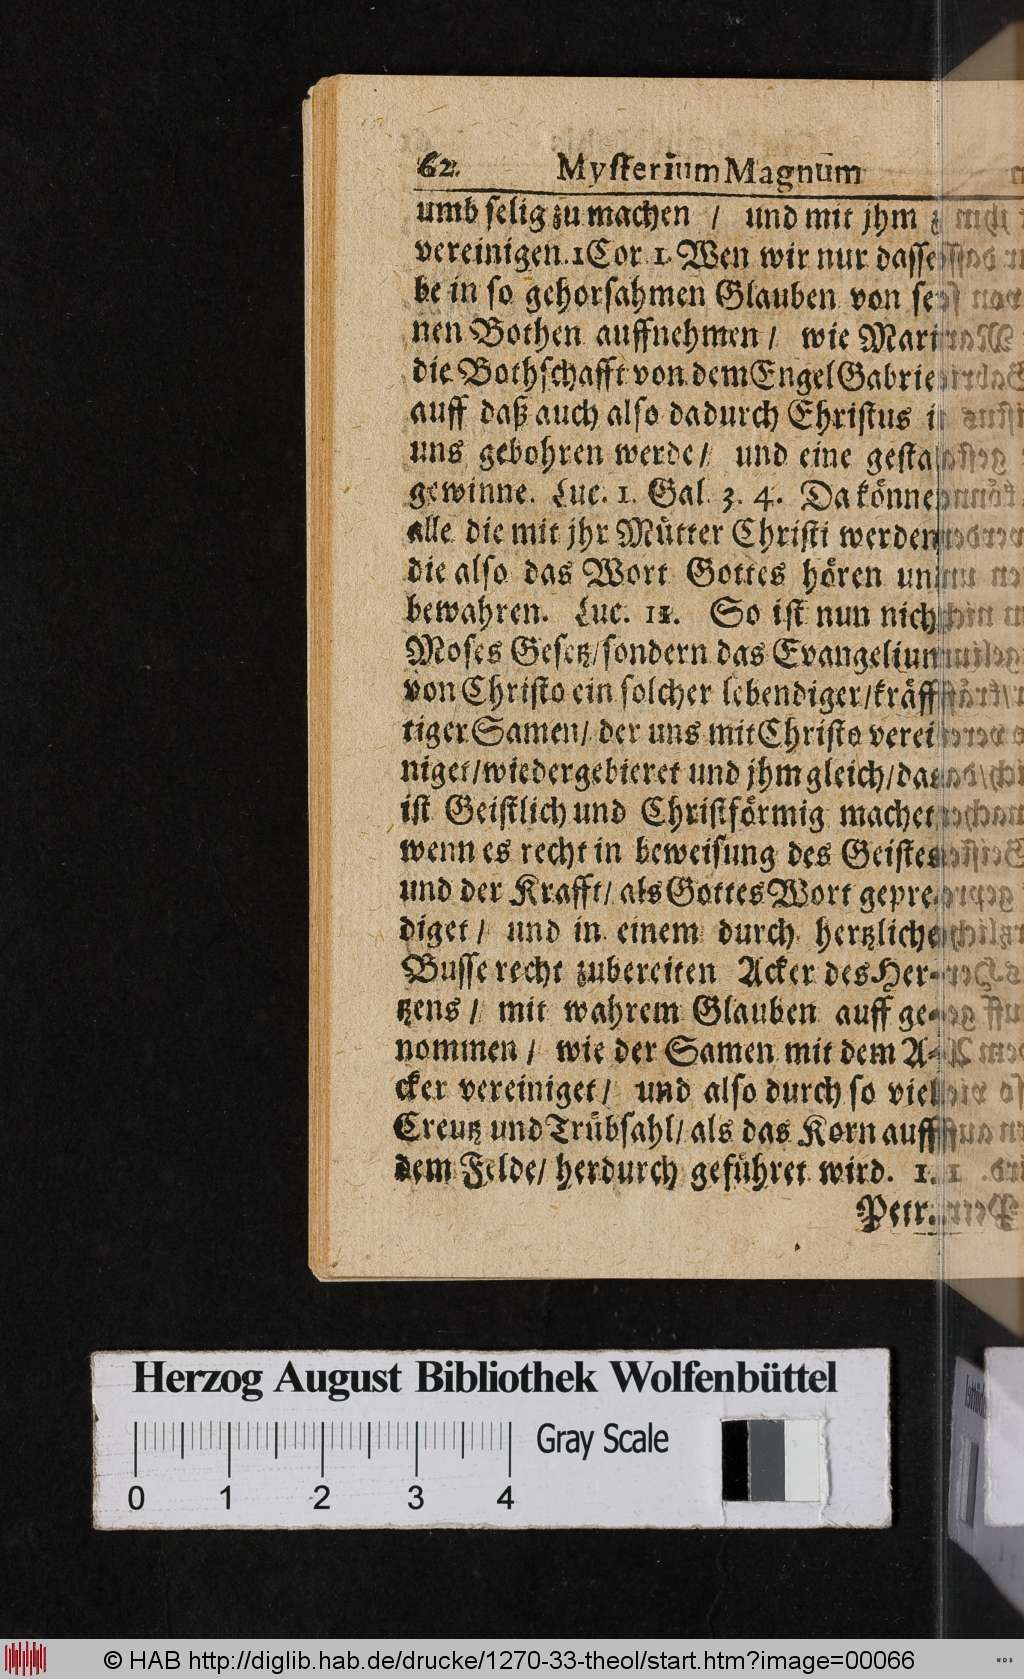 62. Mysterium Magnum
umb selig zu machen / und mit jhm z
vereinigen. 1 Cor 1. Wen wir nur dasse
be in so gehorsahmen Glauben von se
nen Bothen auffnehmen / wie Mari
die Bothschafft von dem Engel Gabrie
auff daß auch also dadurch Christus i
uns gebohren werde / und eine gesta
gewinne. Luc. 1. Gal. 3. 4. Da könne
alle die mit jhr Mütter Christi werden
die also das Wort Gottes hören un
bewahren. Luc. 11. So ist nun nich
Moses Gesetz / sondern das Evangelium
von Christo ein solcher lebendiger / kräff
tiger Samen / der uns mit Christo verei
niget / wiedergebieret und jhm gleich / das
ist Geistlich und Christförmig machet
wenn es recht in beweisung des Geistes
und der Krafft / als Gottes Wort gepre-
diget / und in einem durch hertzliche
Busse recht zubereiten Acker des Her-
tzens / mit wahrem Glauben auff ge-
nommen / wie der Samen mit dem A-
cker vereiniget / und also durch so viel
Creutz und Trübsahl / als das Korn auff
dem Felde / herdurch geführet wird. 1.
Petr.
Herzog August Bibliothek Wolfenbüttel
Gray Scale
0 1 2 3 4
© HAB http://diglib.hab.de/drucke/1270-33-theol/start.htm?image=00066